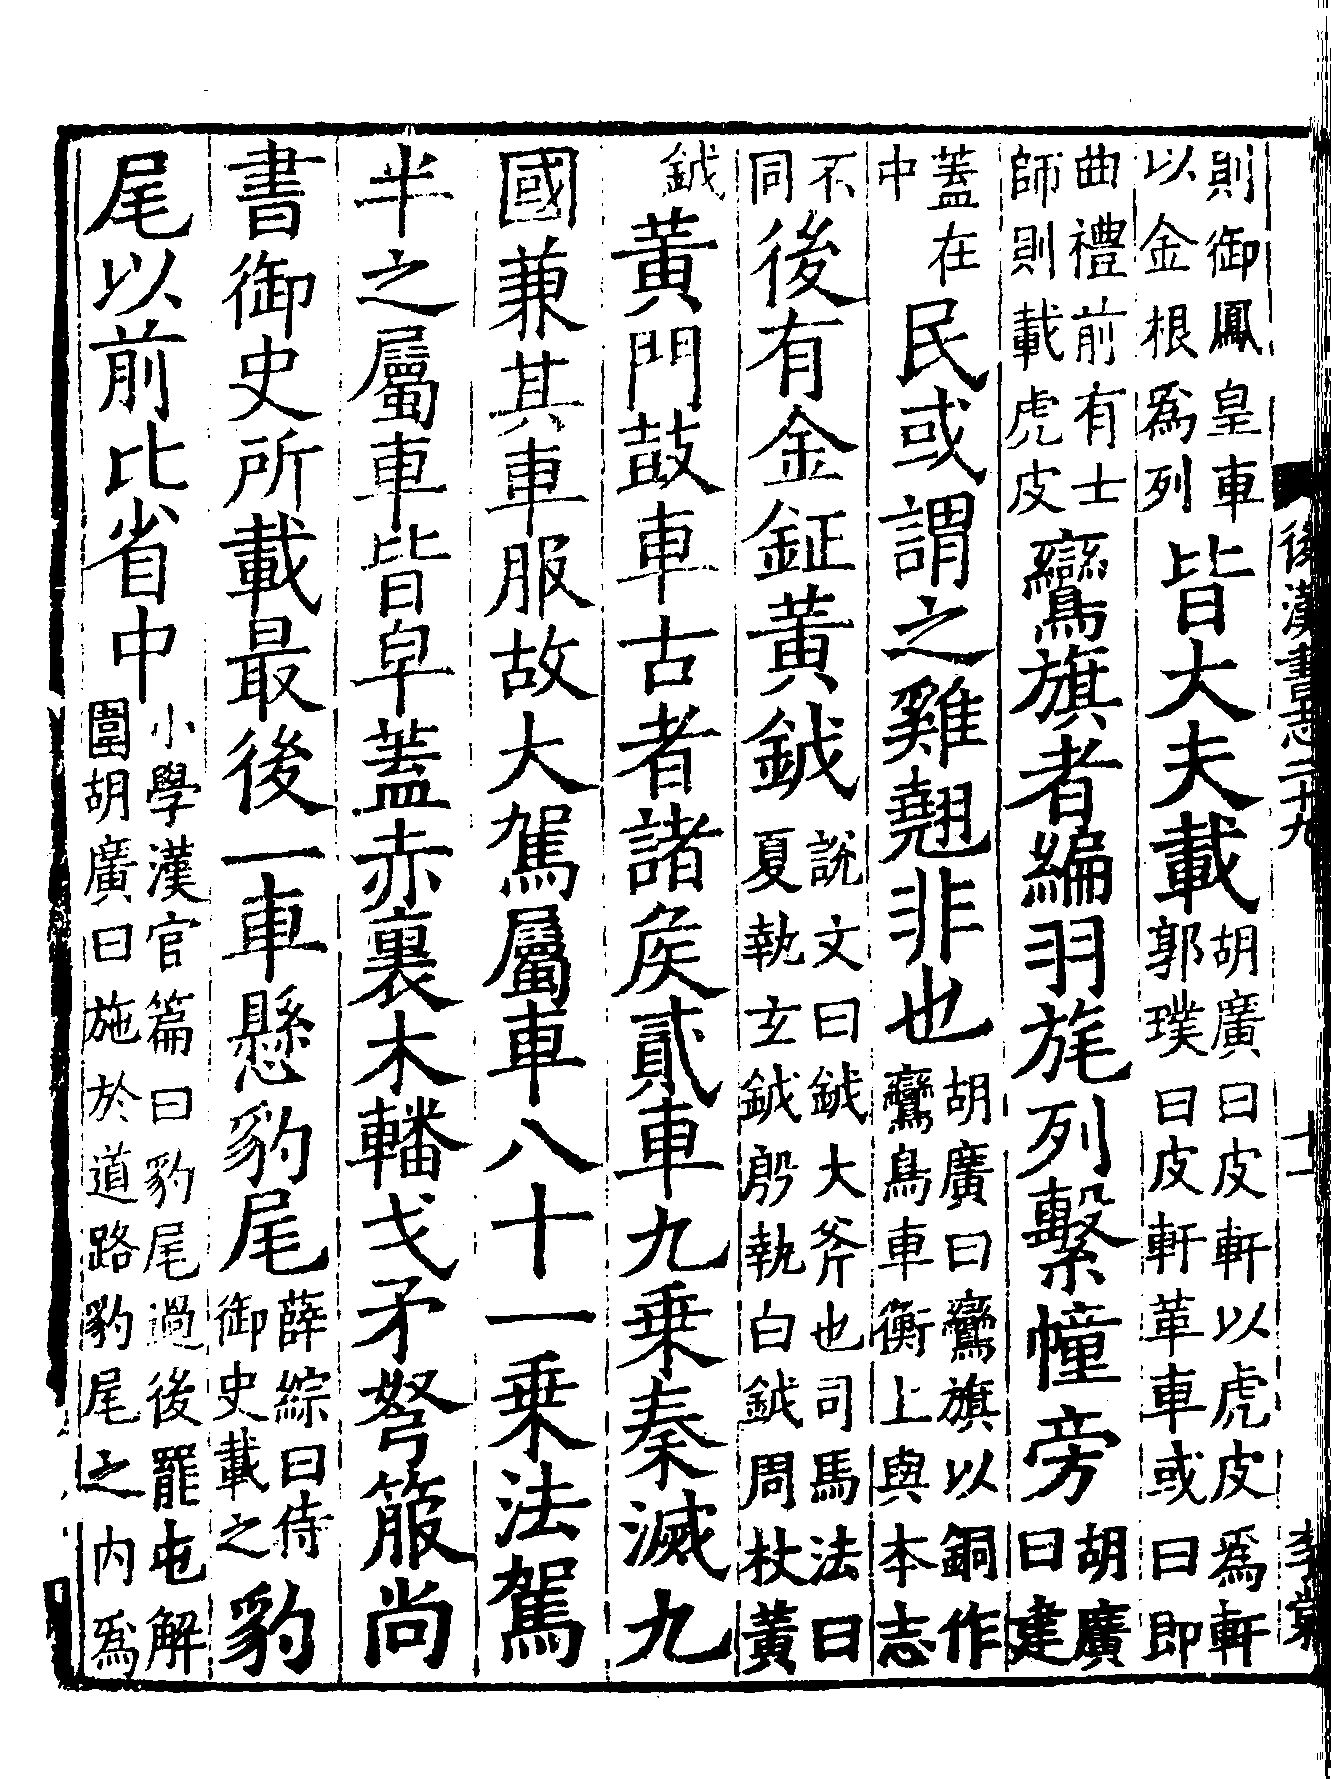 則御鳳皇車以金根爲列皆大夫載胡廣曰皮軒以虎皮爲軒郭璞曰皮軒革車或曰即
曲禮前有士師則載虎皮鸞旗者編羽旄列繫幢旁胡廣曰建
蓋在中民或謂之雞翹非也胡廣曰鸞旗以銅作鸞鳥車衡上與本志
不同後有金鉦黃鉞說文曰鉞大斧也司馬法曰夏執玄鉞殷執白鉞周杖黃
鉞黃門鼓車古者諸侯貳車九乗秦滅九
國兼其車服故大駕屬車八十一乗法駕
半之屬車皆皁蓋赤裏木轓戈矛弩箙尚
書御史所載最後一車懸豹尾薛綜曰侍御史載之豹
尾以前比省中小學漢官篇曰豹尾過後罷屯解圍胡廣曰施於道路豹尾之內爲
後漢書志二十九
十一
李棠